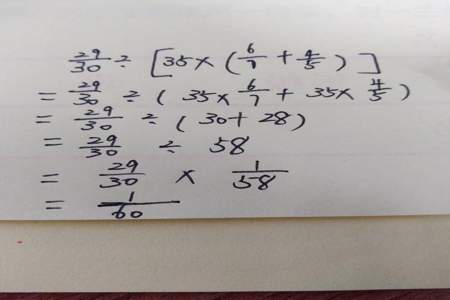 29/30 ÷ [35 × (6/7 + 4/5)]
= 29/30 ÷ (35 × 6/7 + 35 × 4/5)
= 29/30 ÷ (30 + 28)
= 29/30 ÷ 58
= 29/30 × 1/58
= 1/60